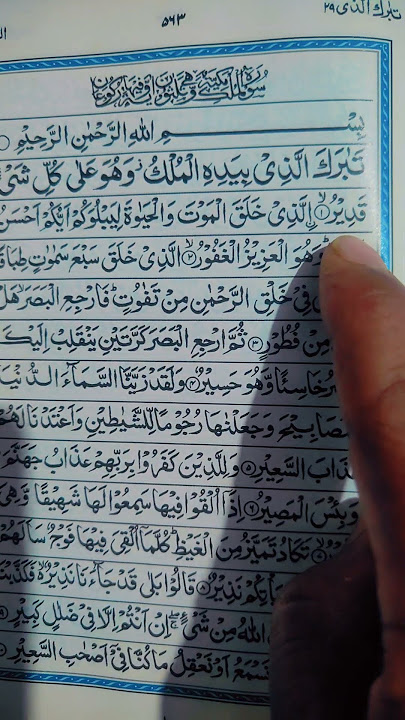 تبٰرك الذی ٢٩
٥٦٣
سُوْرَةُ الْمُلْكِ مَكِّيَّةٌ وَّهِيَ ثَلٰثُوْنَ اٰيَةً
بِسْمِ اللهِ الرَّحْمٰنِ الرَّحِيْمِ
تَبٰرَكَ الَّذِيْ بِيَدِهِ الْمُلْكُ ز وَهُوَ عَلٰى كُلِّ شَيْ
قَدِيْرٌ ۙ﴿١﴾ اۨلَّذِيْ خَلَقَ الْمَوْتَ وَالْحَيٰوةَ لِيَبْلُوَكُمْ اَيُّكُمْ اَحْسَنُ
وَهُوَ الْعَزِيْزُ الْغَفُوْرُ ۙ﴿٢﴾ الَّذِيْ خَلَقَ سَبْعَ سَمٰوٰتٍ طِبَاقًا
فِيْ خَلْقِ الرَّحْمٰنِ مِنْ تَفٰوُتٍ ؕ فَارْجِعِ الْبَصَرَ ۙ هَلْ
مِنْ فُطُوْرٍ ﴿٣﴾ ثُمَّ ارْجِعِ الْبَصَرَ كَرَّتَيْنِ يَنْقَلِبْ اِلَيْكَ
خَاسِئًا وَّهُوَ حَسِيْرٌ ﴿٤﴾ وَلَقَدْ زَيَّنَّا السَّمَآءَ الدُّنْيَا
بِمَصَابِيْحَ وَجَعَلْنٰهَا رُجُوْمًا لِّلشَّيٰطِيْنِ وَاَعْتَدْنَا لَهُمْ
عَذَابَ السَّعِيْرِ ﴿٥﴾ وَلِلَّذِيْنَ كَفَرُوْا بِرَبِّهِمْ عَذَابُ جَهَنَّمَ
وَبِئْسَ الْمَصِيْرُ ﴿٦﴾ اِذَآ اُلْقُوْا فِيْهَا سَمِعُوْا لَهَا شَهِيْقًا وَّهِيَ
تَكَادُ تَمَيَّزُ مِنَ الْغَيْظِ ؕ كُلَّمَآ اُلْقِيَ فِيْهَا فَوْجٌ سَاَلَهُمْ
يَاْتِكُمْ نَذِيْرٌ ﴿٨﴾ قَالُوْا بَلٰى قَدْ جَآءَنَا نَذِيْرٌ ۙ فَكَذَّبْنَا
اللهُ مِنْ شَيْءٍ ۖ اِنْ اَنْتُمْ اِلَّا فِيْ ضَلٰلٍ كَبِيْرٍ ﴿٩﴾
نَسْمَعُ اَوْ نَعْقِلُ مَا كُنَّا فِيْٓ اَصْحٰبِ السَّعِيْرِ